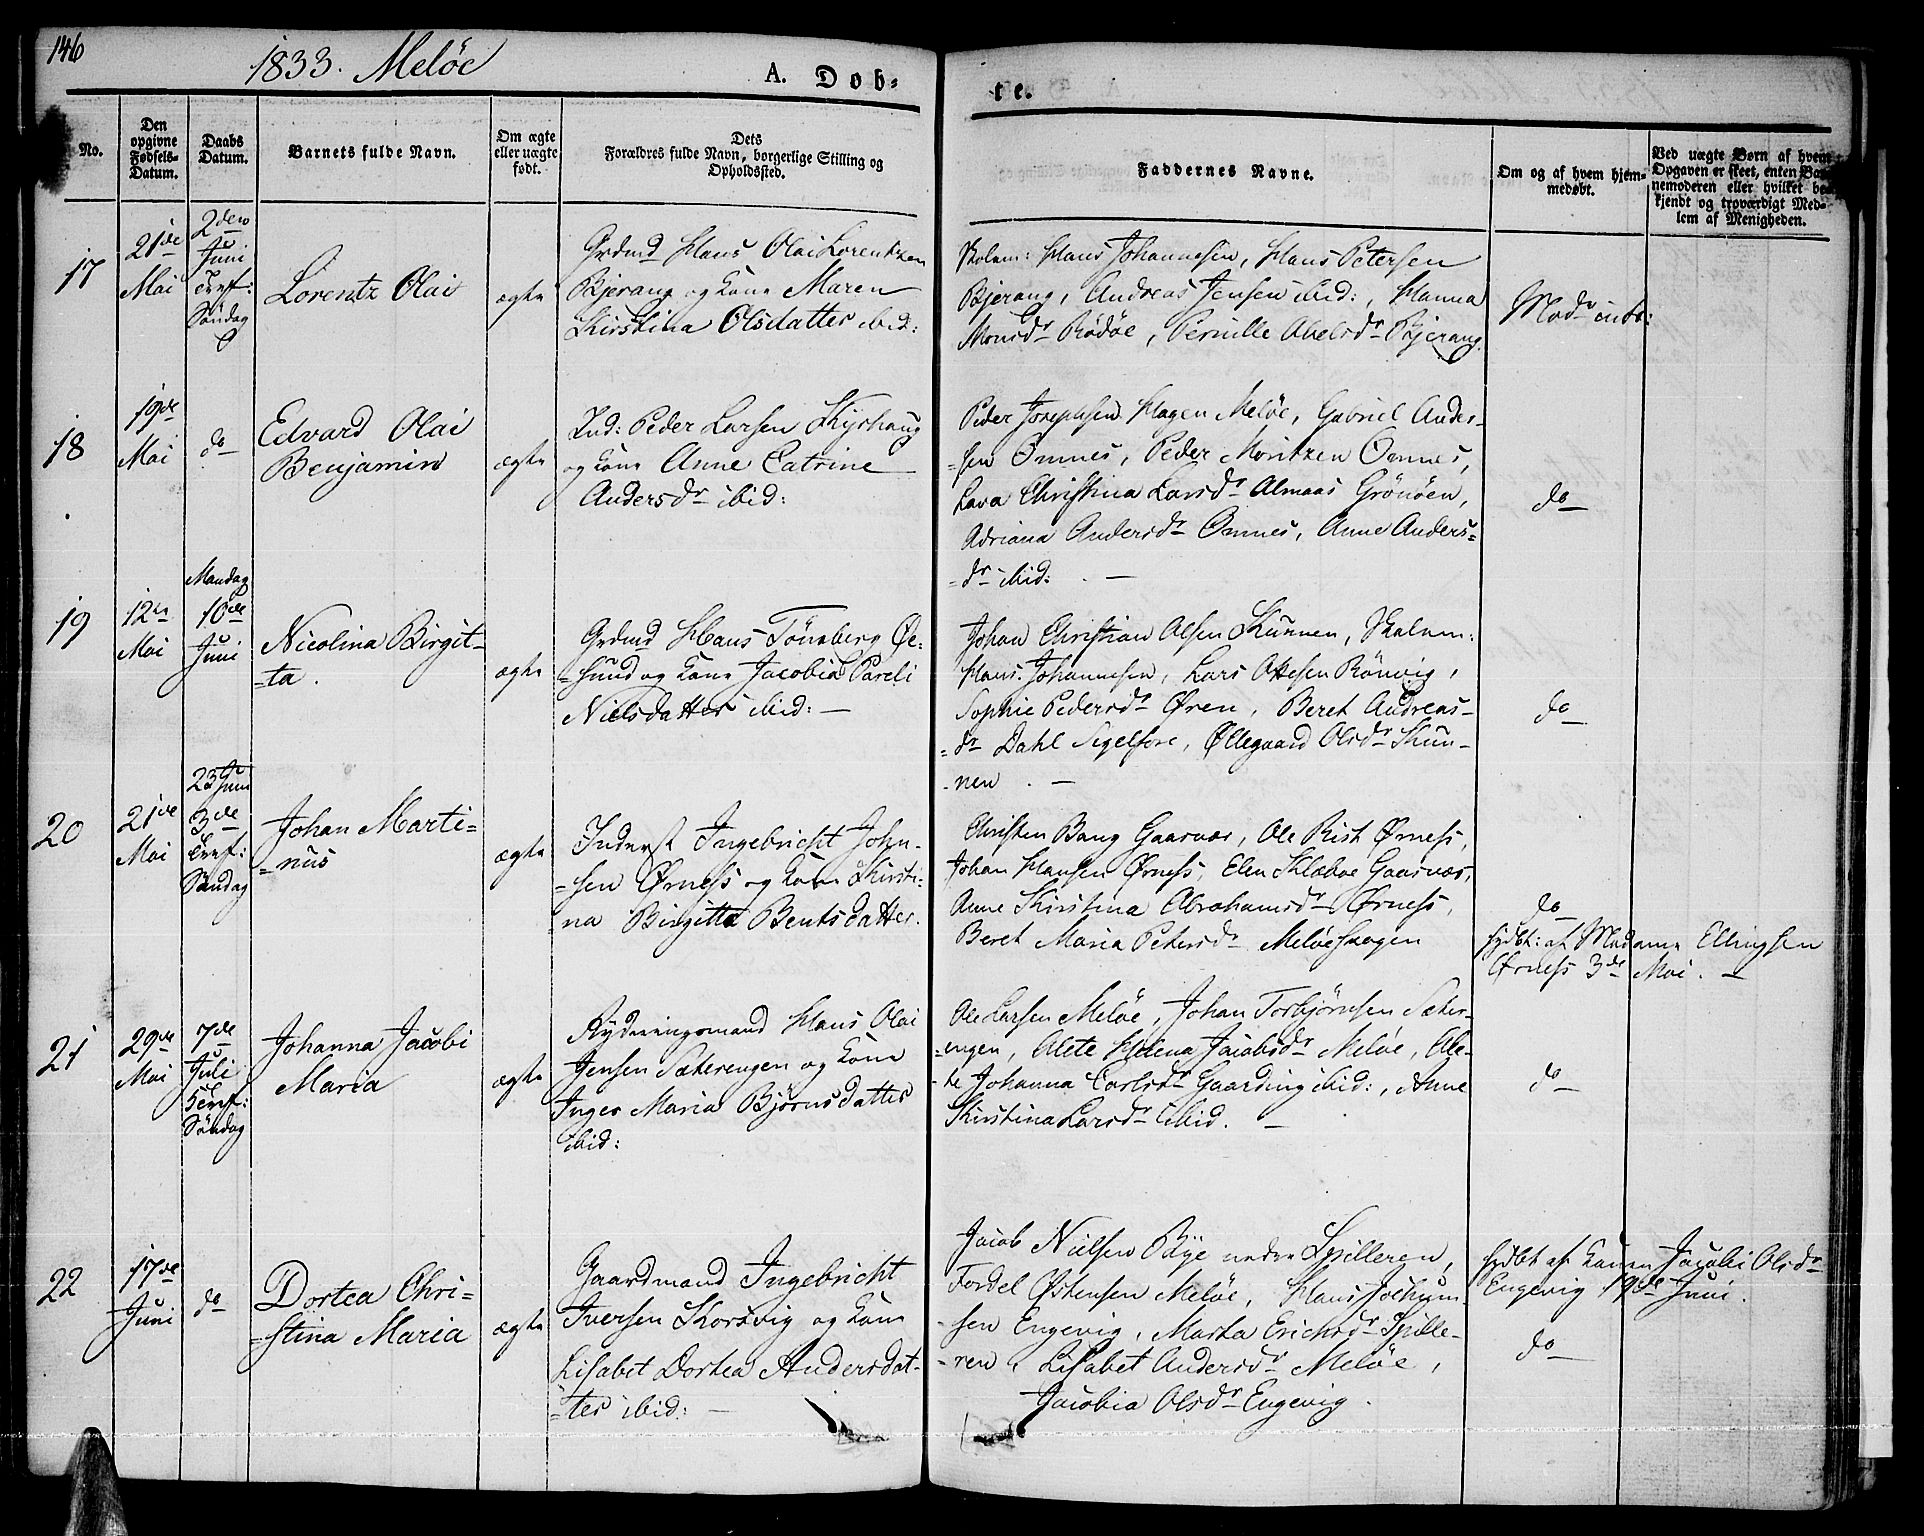 146
1833. Meløe
A. Døb-
te.
No.
Den opgivne Fødsels-Datum.
Daabs Datum.
Barnets fulde Navn.
Om ægte eller uægte født.
Dets Forældres fulde Navn, borgerlige Stilling og Opholdssted.
Faddernes Navne.
Om og af hvem hjem-medøbt.
Ved uægte Børn af hvem Opgaven er skeet, enten Bar-nemoderen eller hvilket be-kjendt og troværdigt Med-lem af Menigheden.
17
21de
Mai
2den
Juni
Tref:
Søndag
Lorentz Olai
ægte
Grdmd Hans Olai Lorentzen
Bjerang og Kone Maren
Kirstina Olsdatter ibid:
Skolem: Hans Johannesen, Hans Petersen
Bjerang, Andreas Jensen ibid:, Hanna
Monsdr Rödöe, Pernille Abelsdr Bjerang.
Modr intr:
18
19de
Mai
do
Edvard Olai
Benjamin
ægte
Ind: Peder Larsen Kyshaug
og Kone Anne Catrine
Andersdr ibid:
Peder Josephsen Hagen Meløe, Gabriel Ander-
-sen Omnes, Peder Moritzen Omnes,
Lava Christina Larsdr Almaas Grönöen,
Adriana Andersdr Omnes, Anne Anders-
-dr ibid: . —
do
19
12te
Mai
Mandag
10de
Juni
Nicolina Birgit-
-ta.
ægte
Grdmd Hans Tönsberg Øe-
-sund og Kone Jacobia Pareli
Nielsdatter ibid: —
Johan Christian Olsen Kunnen, Skolem:
Hans Johannesen, Lars Ottesen Rönvig,
Sophie Pedersdr Øren, Beret Andreas-
-dr Dahl Sigelfore, Øllegaard Olsdr Kun-
-nen . —
do
20
21de
Mai
23 Juni
3de
Tref:
Søndag
Johan Marti-
-nus
ægte
Inderst Ingebricht John-
-sen Ørness og Kone Kirsti-
-na Birgitta Bentsdatter.
Christen Bang Gaasvær, Ole Rist Ørness,
Johan Hansen Ørness, Elen Klæboe Gaasvær,
Anne Kirstina Abrahamsdr Ørness,
Beret Maria Petersdr Meløeskogen
do
hjdbt: af Madame Ellingsen
Ørness 3de Mai. —
21
29de
Mai
7de
Juli
5tref:
Søndag
Johanna Jacobi
Maria
ægte
Rydningsmand Hans Olai
Jensen Sæterengen og Kone
Inger Maria Bjørnsdatter
ibid:
Ole Larsen Meløe, Johan Torbjörnsen Sæter-
-engen, Alete Helena Jacobsdr Meløe, Ole-
-te Johanna Carlsdr Gaarding ibid:, Anne
Kirstina Larsdr ibid. —
do
22
17de
Juni
do
Dortea Chri-
-stina Maria
ægte
Gaardmand Ingebricht
Iversen Korsvig og Kone
Lisabet Dortea Andersdat-
-ter ibid: —
Jacob Nielsen Bye nedre Spilleren,
Fordel Østensen Meløe, Hans Jochum-
-sen Engevig, Marta Erichsdr Spille-
-ren, Lisabet Andersdr Meløe,
Jacobia Olsdr Engevig.
hjdbt af Konen Jacobi Olsdr
Engevig 19de Juni.
do